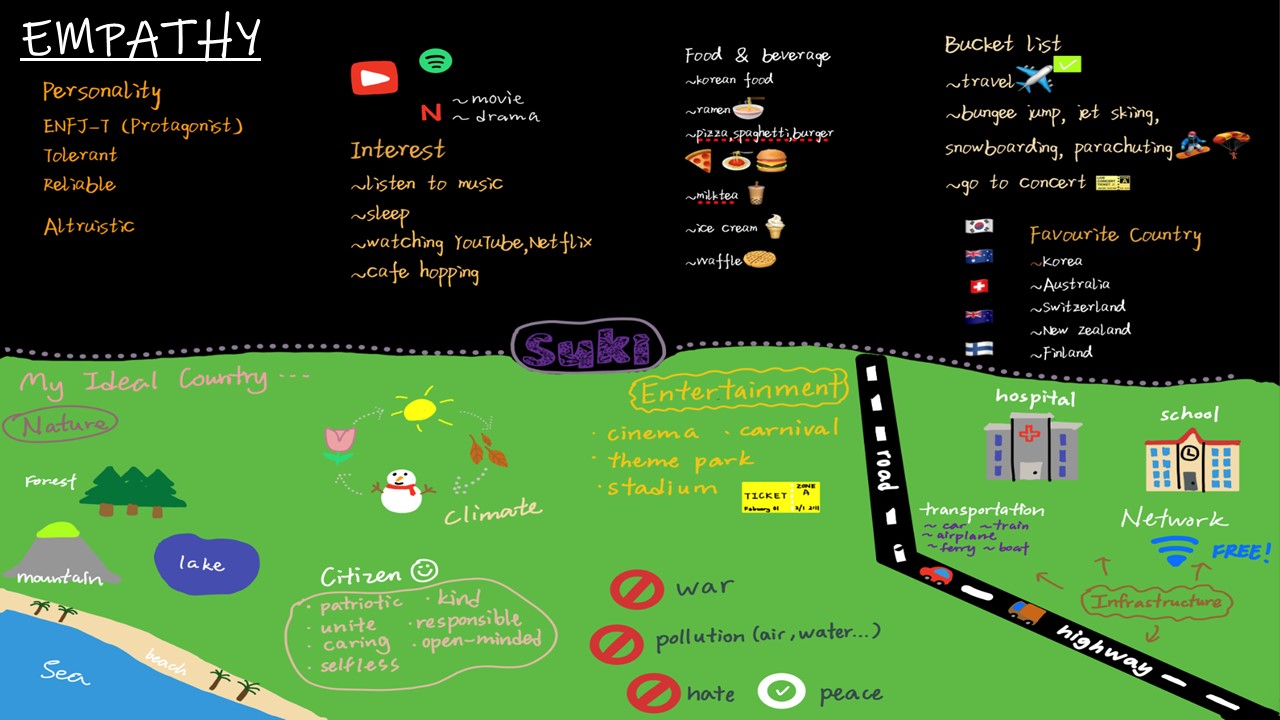 EMPATHY
Personality
ENFJ-T (Protagonist)
Tolerant
Reliable
Altruistic
N
~movie
~drama
Interest
~listen to music
~sleep
~watching YouTube,Netflix
~cafe hopping
Food & beverage
~korean food
~ramen
~pizza,spaghetti,burger
~milktea
~ice cream
~waffle
Bucket list
~travel
~bungee jump, jet skiing,
snowboarding, parachuting
~go to concert
Favourite Country
~Korea
~Australia
~Switzerland
~New zealand
~Finland
Suki
My Ideal Country ...
Nature
Forest
mountain
lake
beach
Sea
Climate
Citizen
· patriotic · kind
· unite · responsible
· caring · open-minded
· selfless
Entertainment
· cinema · carnival
· theme park
· stadium
TICKET
ZONE
A
war
pollution (air, water...)
hate
peace
road
highway
hospital
school
transportation
~ car ~ train
~ airplane
~ ferry ~ boat
Network
FREE!
Infrastructure